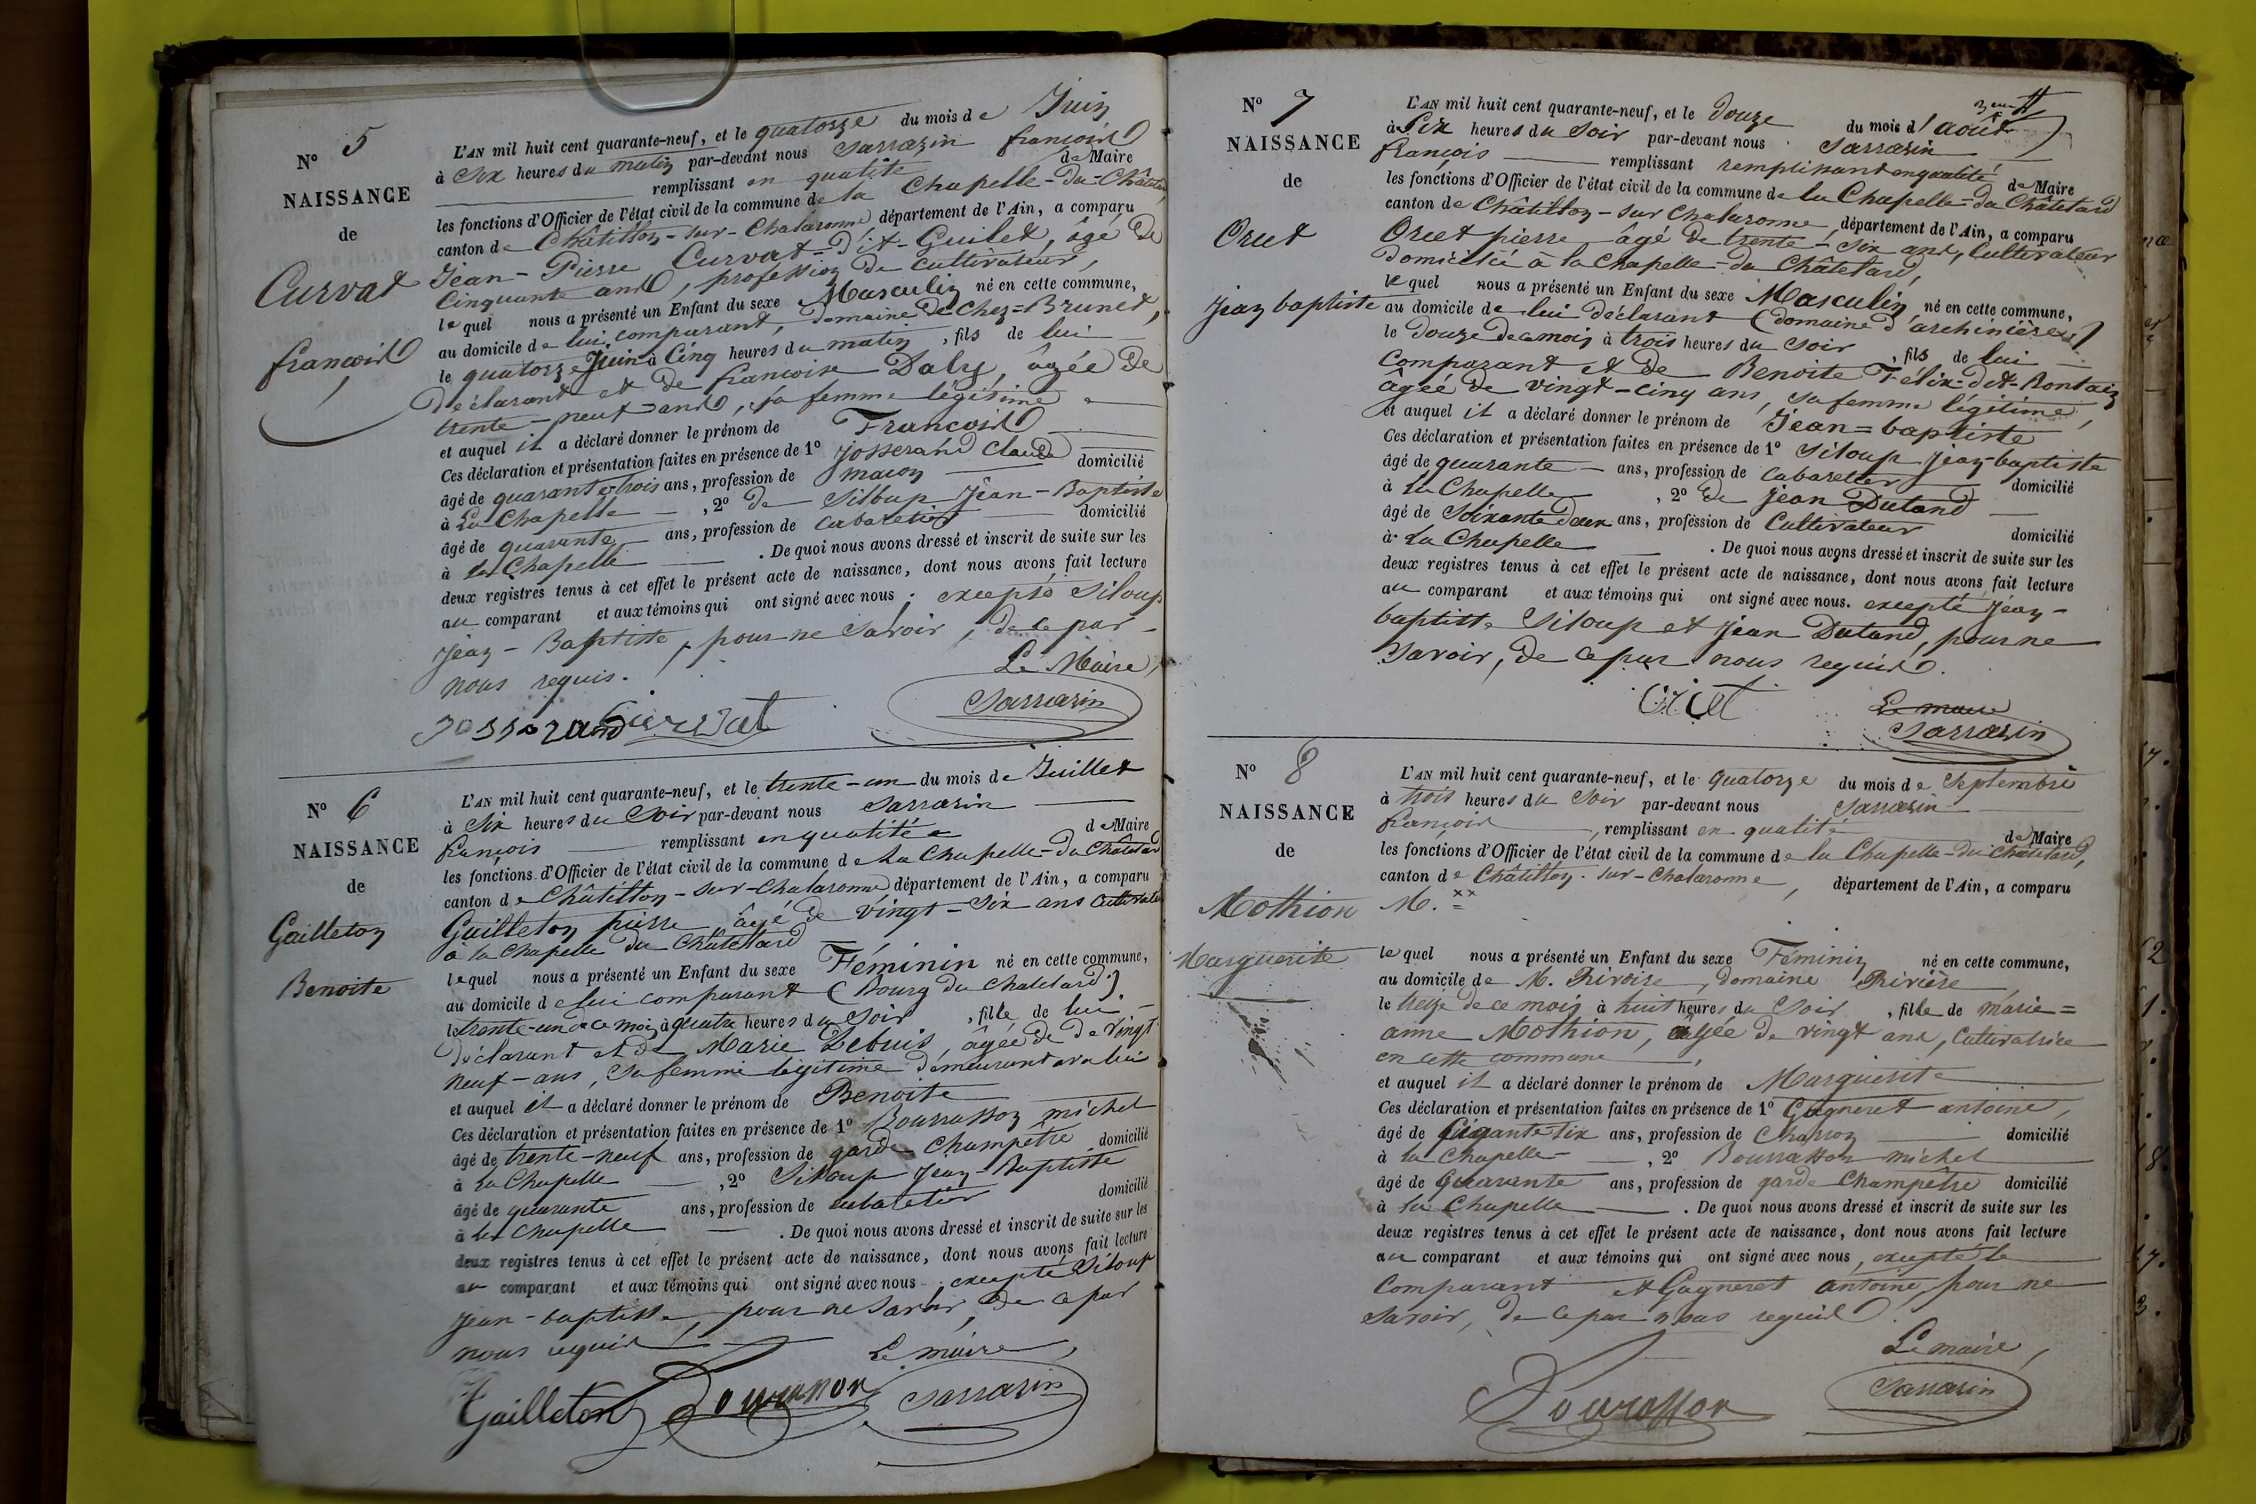 N° 5
NAISSANCE
de
Curvat
françois
L'AN mil huit cent quarante-neuf, et le quatorze du mois de Juin
à six heures du matin par-devant nous Sarrazin françois
remplissant en qualité de Maire
les fonctions d'Officier de l'état civil de la commune de la Chapelle-du-Châtelard
canton de Châtillon-sur-Chalaronne département de l'Ain, a comparu
Jean-Pierre Curvat-dit-Guilet, âgé de
Cinquante ans, profession de cultivateur,
lequel nous a présenté un Enfant du sexe Masculin né en cette commune,
au domicile de lui comparant, domaine de Chez=Brunet,
le quatorze Juin à Cinq heures du matin, fils de lui
déclarant et de françoise Daly, âgée de
trente-neuf ans, sa femme légitime
et auquel il a déclaré donner le prénom de François
Ces déclaration et présentation faites en présence de 1° Josserand Claude
âgé de quarante trois ans, profession de maçon domicilié
à La Chapelle, 2° de Siloup Jean-Baptiste
âgé de quarante ans, profession de cabaretier domicilié
à La Chapelle. De quoi nous avons dressé et inscrit de suite sur les
deux registres tenus à cet effet le présent acte de naissance, dont nous avons fait lecture
au comparant et aux témoins qui ont signé avec nous; excepté Siloup
Jean-Baptiste, pour ne savoir, de ce par-
nous requis.
Le Maire,
Josserand Curvat Sarrazin
N° 6
NAISSANCE
de
Gailleton
Benoite
L'AN mil huit cent quarante-neuf, et le trente-un du mois de Juillet
à Six heures du Soir par-devant nous Sarrazin
françois remplissant en qualité de Maire
les fonctions d'Officier de l'état civil de la commune de La Chapelle-du Châtelard
canton de Châtillon-sur-Chalaronne département de l'Ain, a comparu
Guilleton pierre âgé de vingt-six ans Cultivateur
à la Chapelle du Châtelard
lequel nous a présenté un Enfant du sexe Féminin né en cette commune,
au domicile de lui comparant (Bourg du Chatelard)
le trente-un de ce mois à quatre heures du Soir, fille de lui
déclarant et de Marie Debuis, âgée de de vingt
neuf-ans, sa femme légitime demeurant avec lui
et auquel il a déclaré donner le prénom de Benoite
Ces déclaration et présentation faites en présence de 1° Bourrasson michel
âgé de trente-neuf ans, profession de garde Champêtre domicilié
à La Chapelle, 2° Siloup Jean-Baptiste
âgé de quarante ans, profession de cabaretier domicilié
à La Chapelle. De quoi nous avons dressé et inscrit de suite sur les
deux registres tenus à cet effet le présent acte de naissance, dont nous avons fait lecture
au comparant et aux témoins qui ont signé avec nous. excepté Siloup
Jean-baptiste, pour ne savoir, de ce par
nous requis
Le maire,
Gailleton Bourrasson Sarrazin
N° 7
NAISSANCE
de
Oriet
Jean baptiste
L'AN mil huit cent quarante-neuf, et le douze du mois d'août
à Six heures du Soir par-devant nous Sarrazin
françois remplissant remplissant en qualité de Maire
les fonctions d'Officier de l'état civil de la commune de la Chapelle-du Châtelard
canton de Châtillon-sur Chalaronne, département de l'Ain, a comparu
Oriet pierre âgé de trente-six ans, Cultivateur
domicilié à la Chapelle-du Châtelard,
lequel nous a présenté un Enfant du sexe Masculin né en cette commune,
au domicile de lui déclarant (domaine d'archinières)
le douze de ce mois à trois heures du soir, fils de lui
comparant et de Benoite Felix-dit-Rontain
âgée de vingt-cinq ans, sa femme légitime,
et auquel il a déclaré donner le prénom de Jean=baptiste
Ces déclaration et présentation faites en présence de 1° Siloup Jean-baptiste
âgé de quarante ans, profession de cabaretier domicilié
à La Chapelle, 2° de Jean Dutand
âgé de Soixante deux ans, profession de Cultivateur domicilié
à La Chapelle. De quoi nous avons dressé et inscrit de suite sur les
deux registres tenus à cet effet le présent acte de naissance, dont nous avons fait lecture
au comparant et aux témoins qui ont signé avec nous. excepté Jean-
baptiste Siloup et Jean Dutand, pour ne
Savoir, de ce par nous requis.
Oriet
Le maire
Sarrazin
N° 8
NAISSANCE
de
Mothion
Marguerite
L'AN mil huit cent quarante-neuf, et le quatorze du mois de Septembre
à trois heures du Soir par-devant nous Sarrazin
françois, remplissant en qualité de Maire
les fonctions d'Officier de l'état civil de la commune de la Chapelle-du Châtelard,
canton de Châtillon-sur-Chalaronne, département de l'Ain, a comparu
M.
lequel nous a présenté un Enfant du sexe Féminin né en cette commune,
au domicile de M. Rivoire, domaine Rivière
le treize de ce mois à huit heures du Soir, fille de marie=
anne Mothion, âgée de vingt ans, Cultivatrice
en cette commune,
et auquel il a déclaré donner le prénom de Marguerite
Ces déclaration et présentation faites en présence de 1° Gagneret antoine,
âgé de Cinquante six ans, profession de Charron domicilié
à la Chapelle, 2° Bourrasson michel
âgé de Quarante ans, profession de garde Champêtre domicilié
à La Chapelle. De quoi nous avons dressé et inscrit de suite sur les
deux registres tenus à cet effet le présent acte de naissance, dont nous avons fait lecture
au comparant et aux témoins qui ont signé avec nous, excepté le
Comparant et Gagneret antoine, pour ne
savoir, de ce par nous requis.
Le maire,
Bourasson Sarrazin